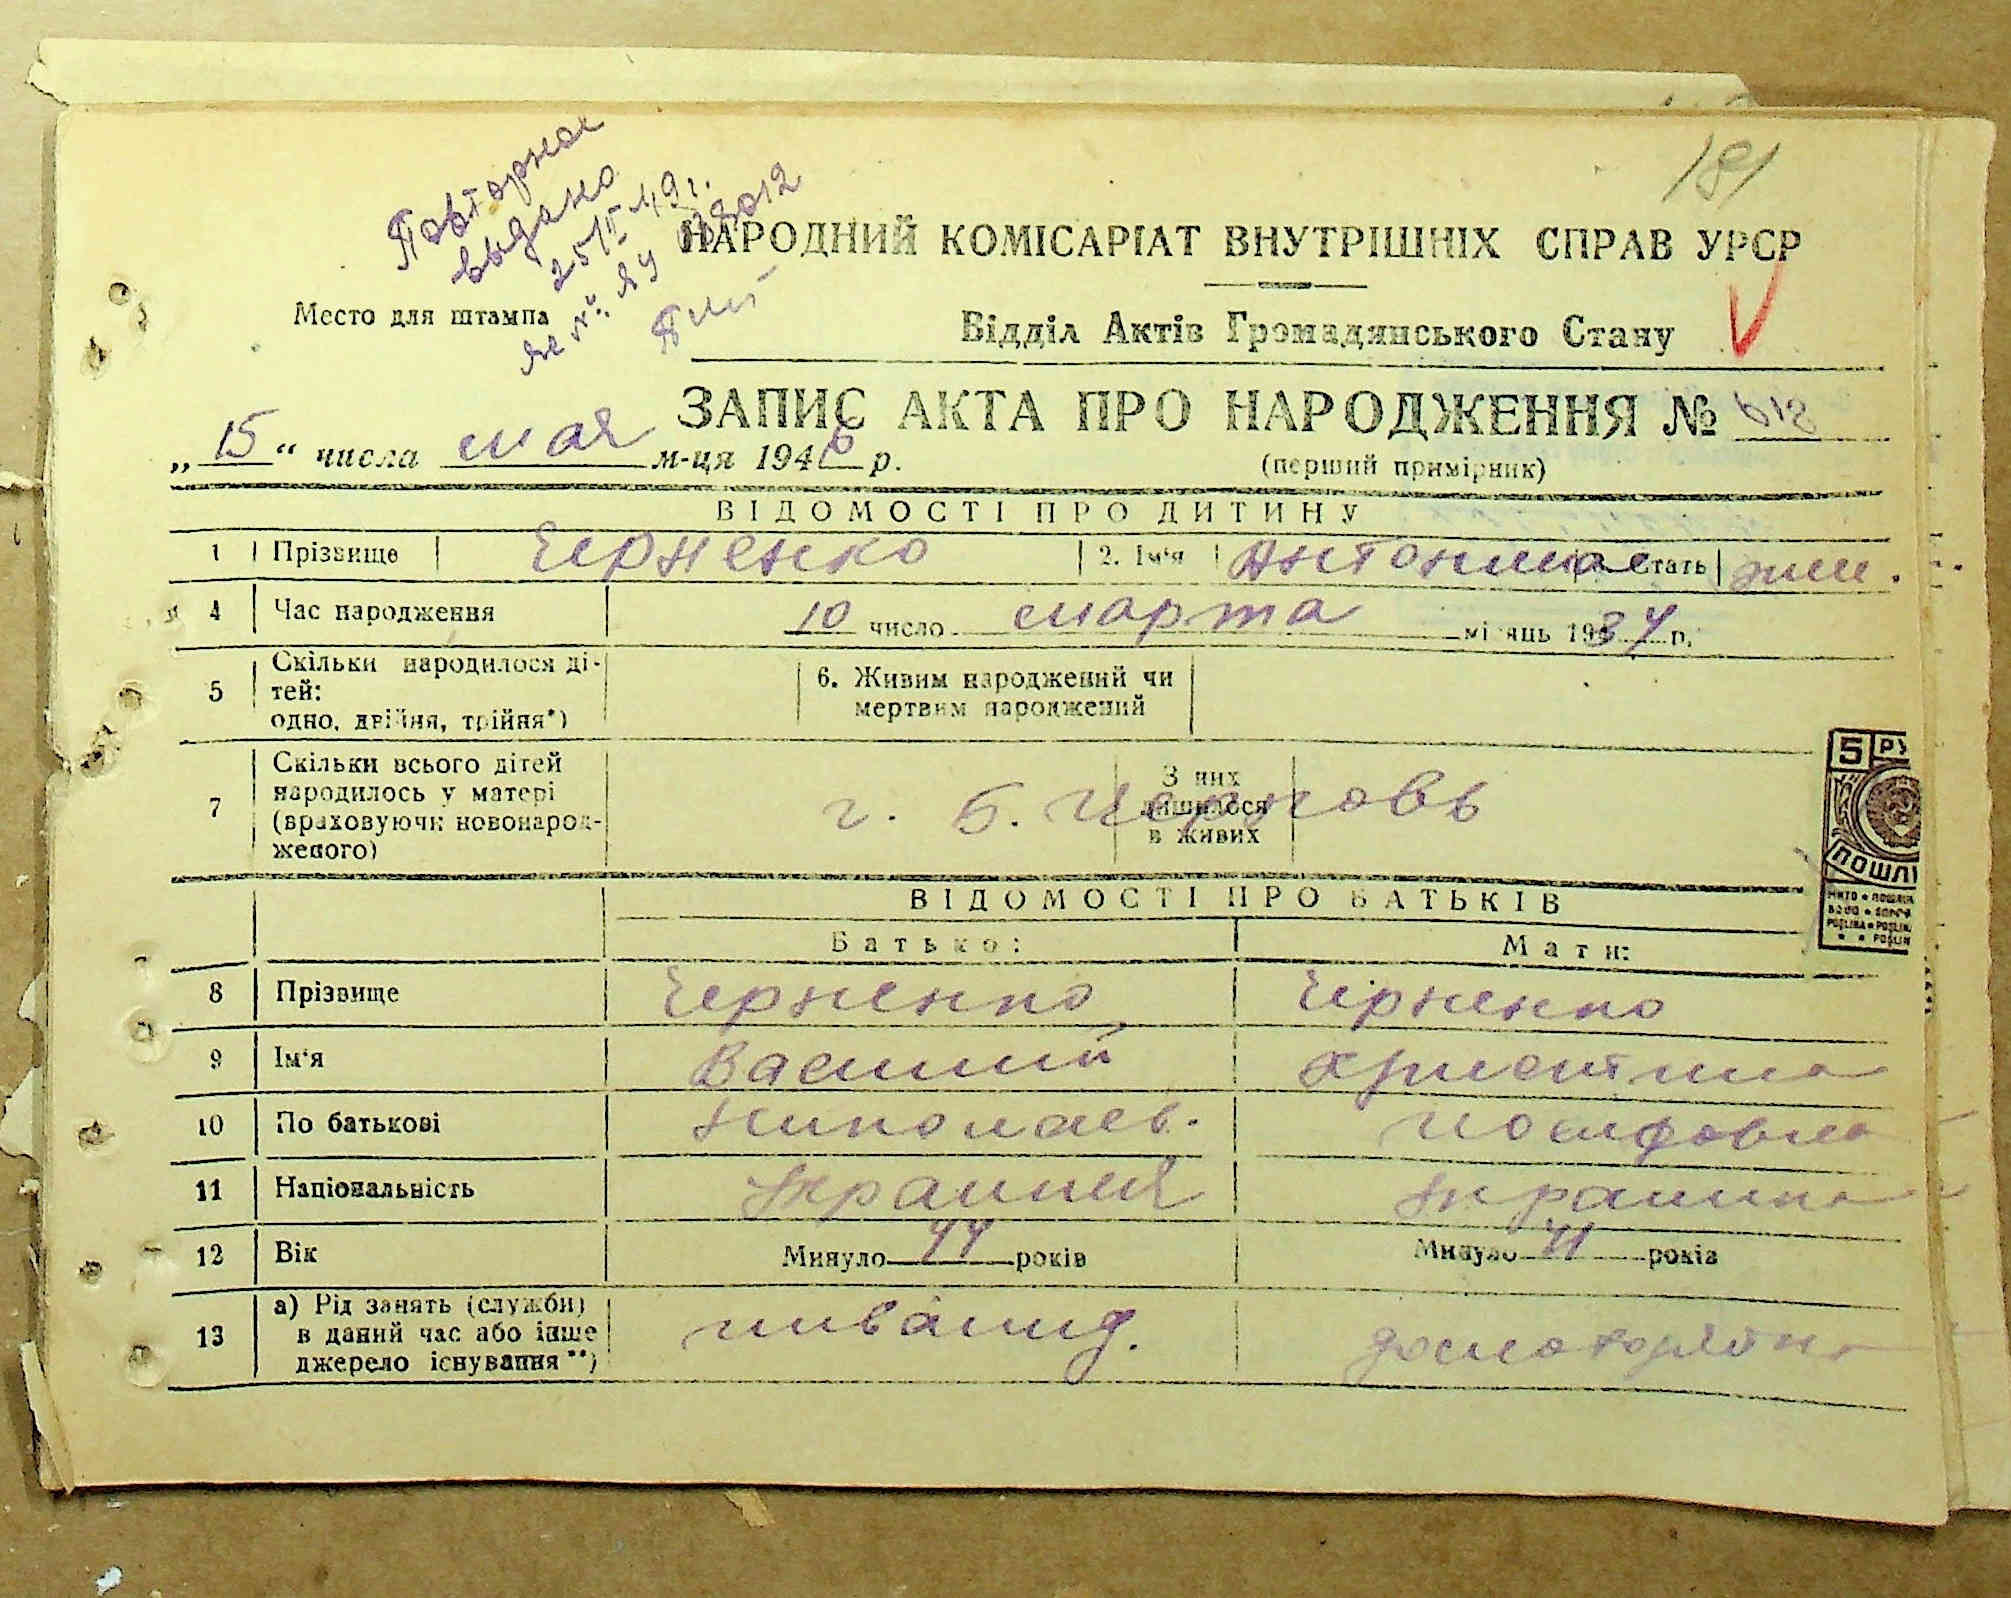 181
Повторное
выдано
25/II 49 г.
НАРОДНИЙ КОМІСАРІАТ ВНУТРІШНІХ СПРАВ УРСР
Место для штампа
Відділ Актів Громадянського Стану
ЗАПИС АКТА ПРО НАРОДЖЕННЯ № 618
„ 15 “ числа мая м-ця 1946 р.
(перший примірник)
ВІДОМОСТІ ПРО ДИТИНУ
1 Прізвище Черненко 2. Ім'я Антонина Стать жен.
4 Час народження 10 число марта місяць 1934 р.
5 Скільки народилося ді-
тей:
одно, двійня, трійня*)
6. Живим народжений чи
мертвим народжений
7 Скільки всього дітей
народилось у матері
(враховуючи новонарод-
женого)
З них
лишилося
в живих
г. Б. Черновь
5 РУ
ПОШЛ
ВІДОМОСТІ ПРО БАТЬКІВ
Батько: Мати:
8 Прізвище Черненко Черненко
9 Ім'я Василий Христина
10 По батькові Николаев. Иосифовна
11 Національність Украинец Украинка
12 Вік Минуло 44 років Минуло 41 років
13 а) Рід занять (служби)
в даний час або інше
джерело існування**)
инвалид. домохозяйка